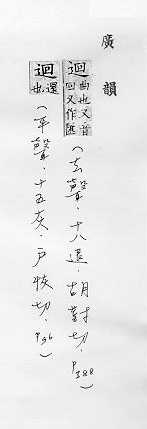 廣韻
迴 曲也又音回又作 (去聲．十八隊．胡對切．P388)
迴 還也 (平聲．十五灰．戶恢切．P96)